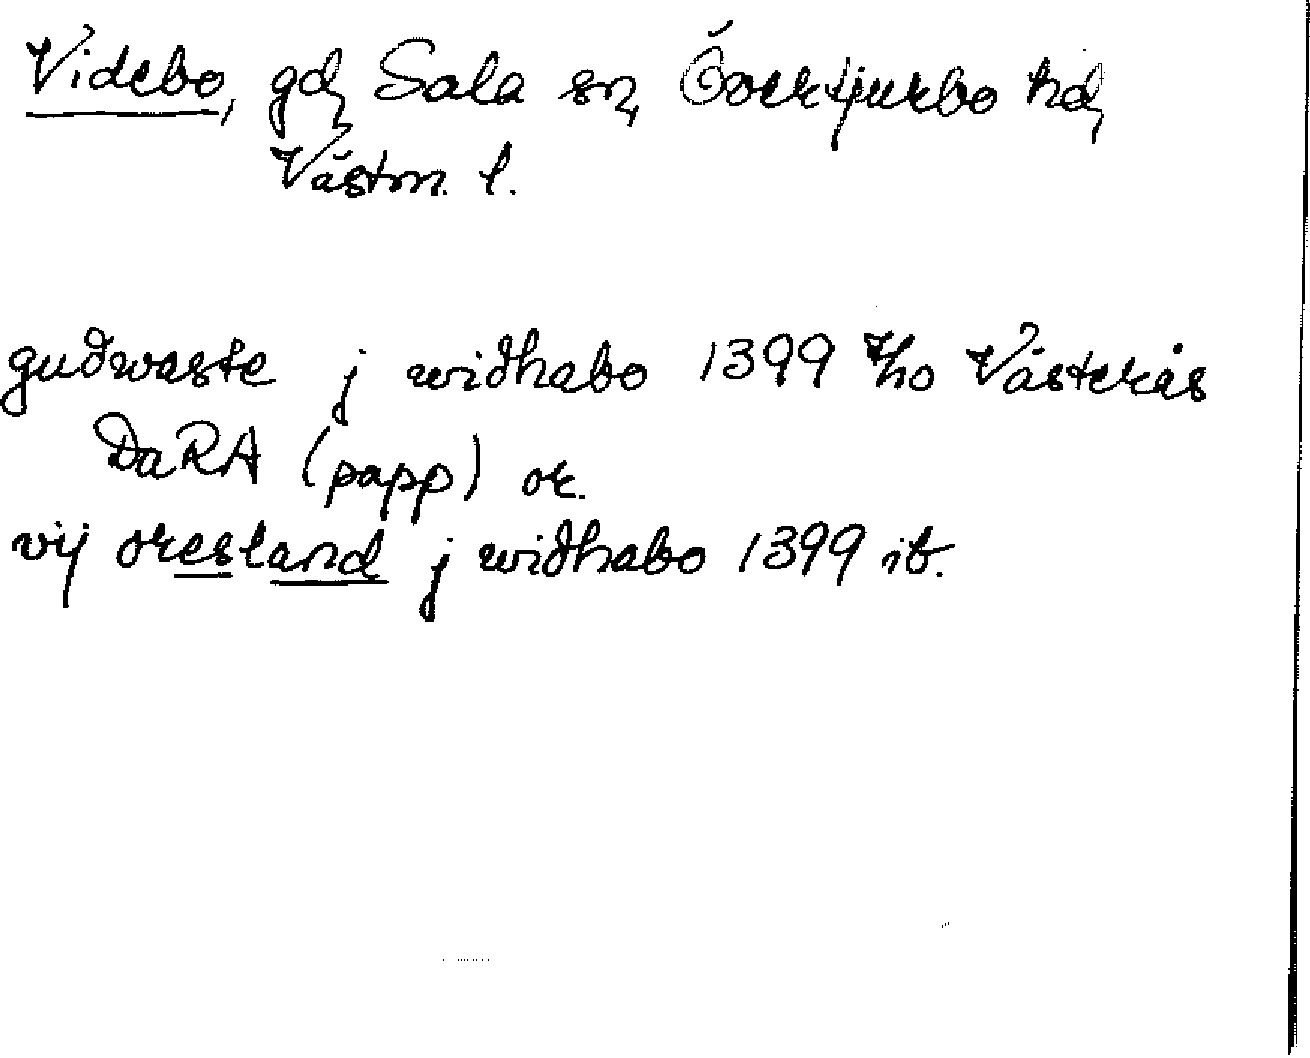 Videbo, gd, Sala sn, Övertjurbo hd,
Västm. l.
guðwaste j wiðhabo 1399 4/10 Västerås
DaRA (papp) or.
vij øresland j wiðhabo 1399 ib.